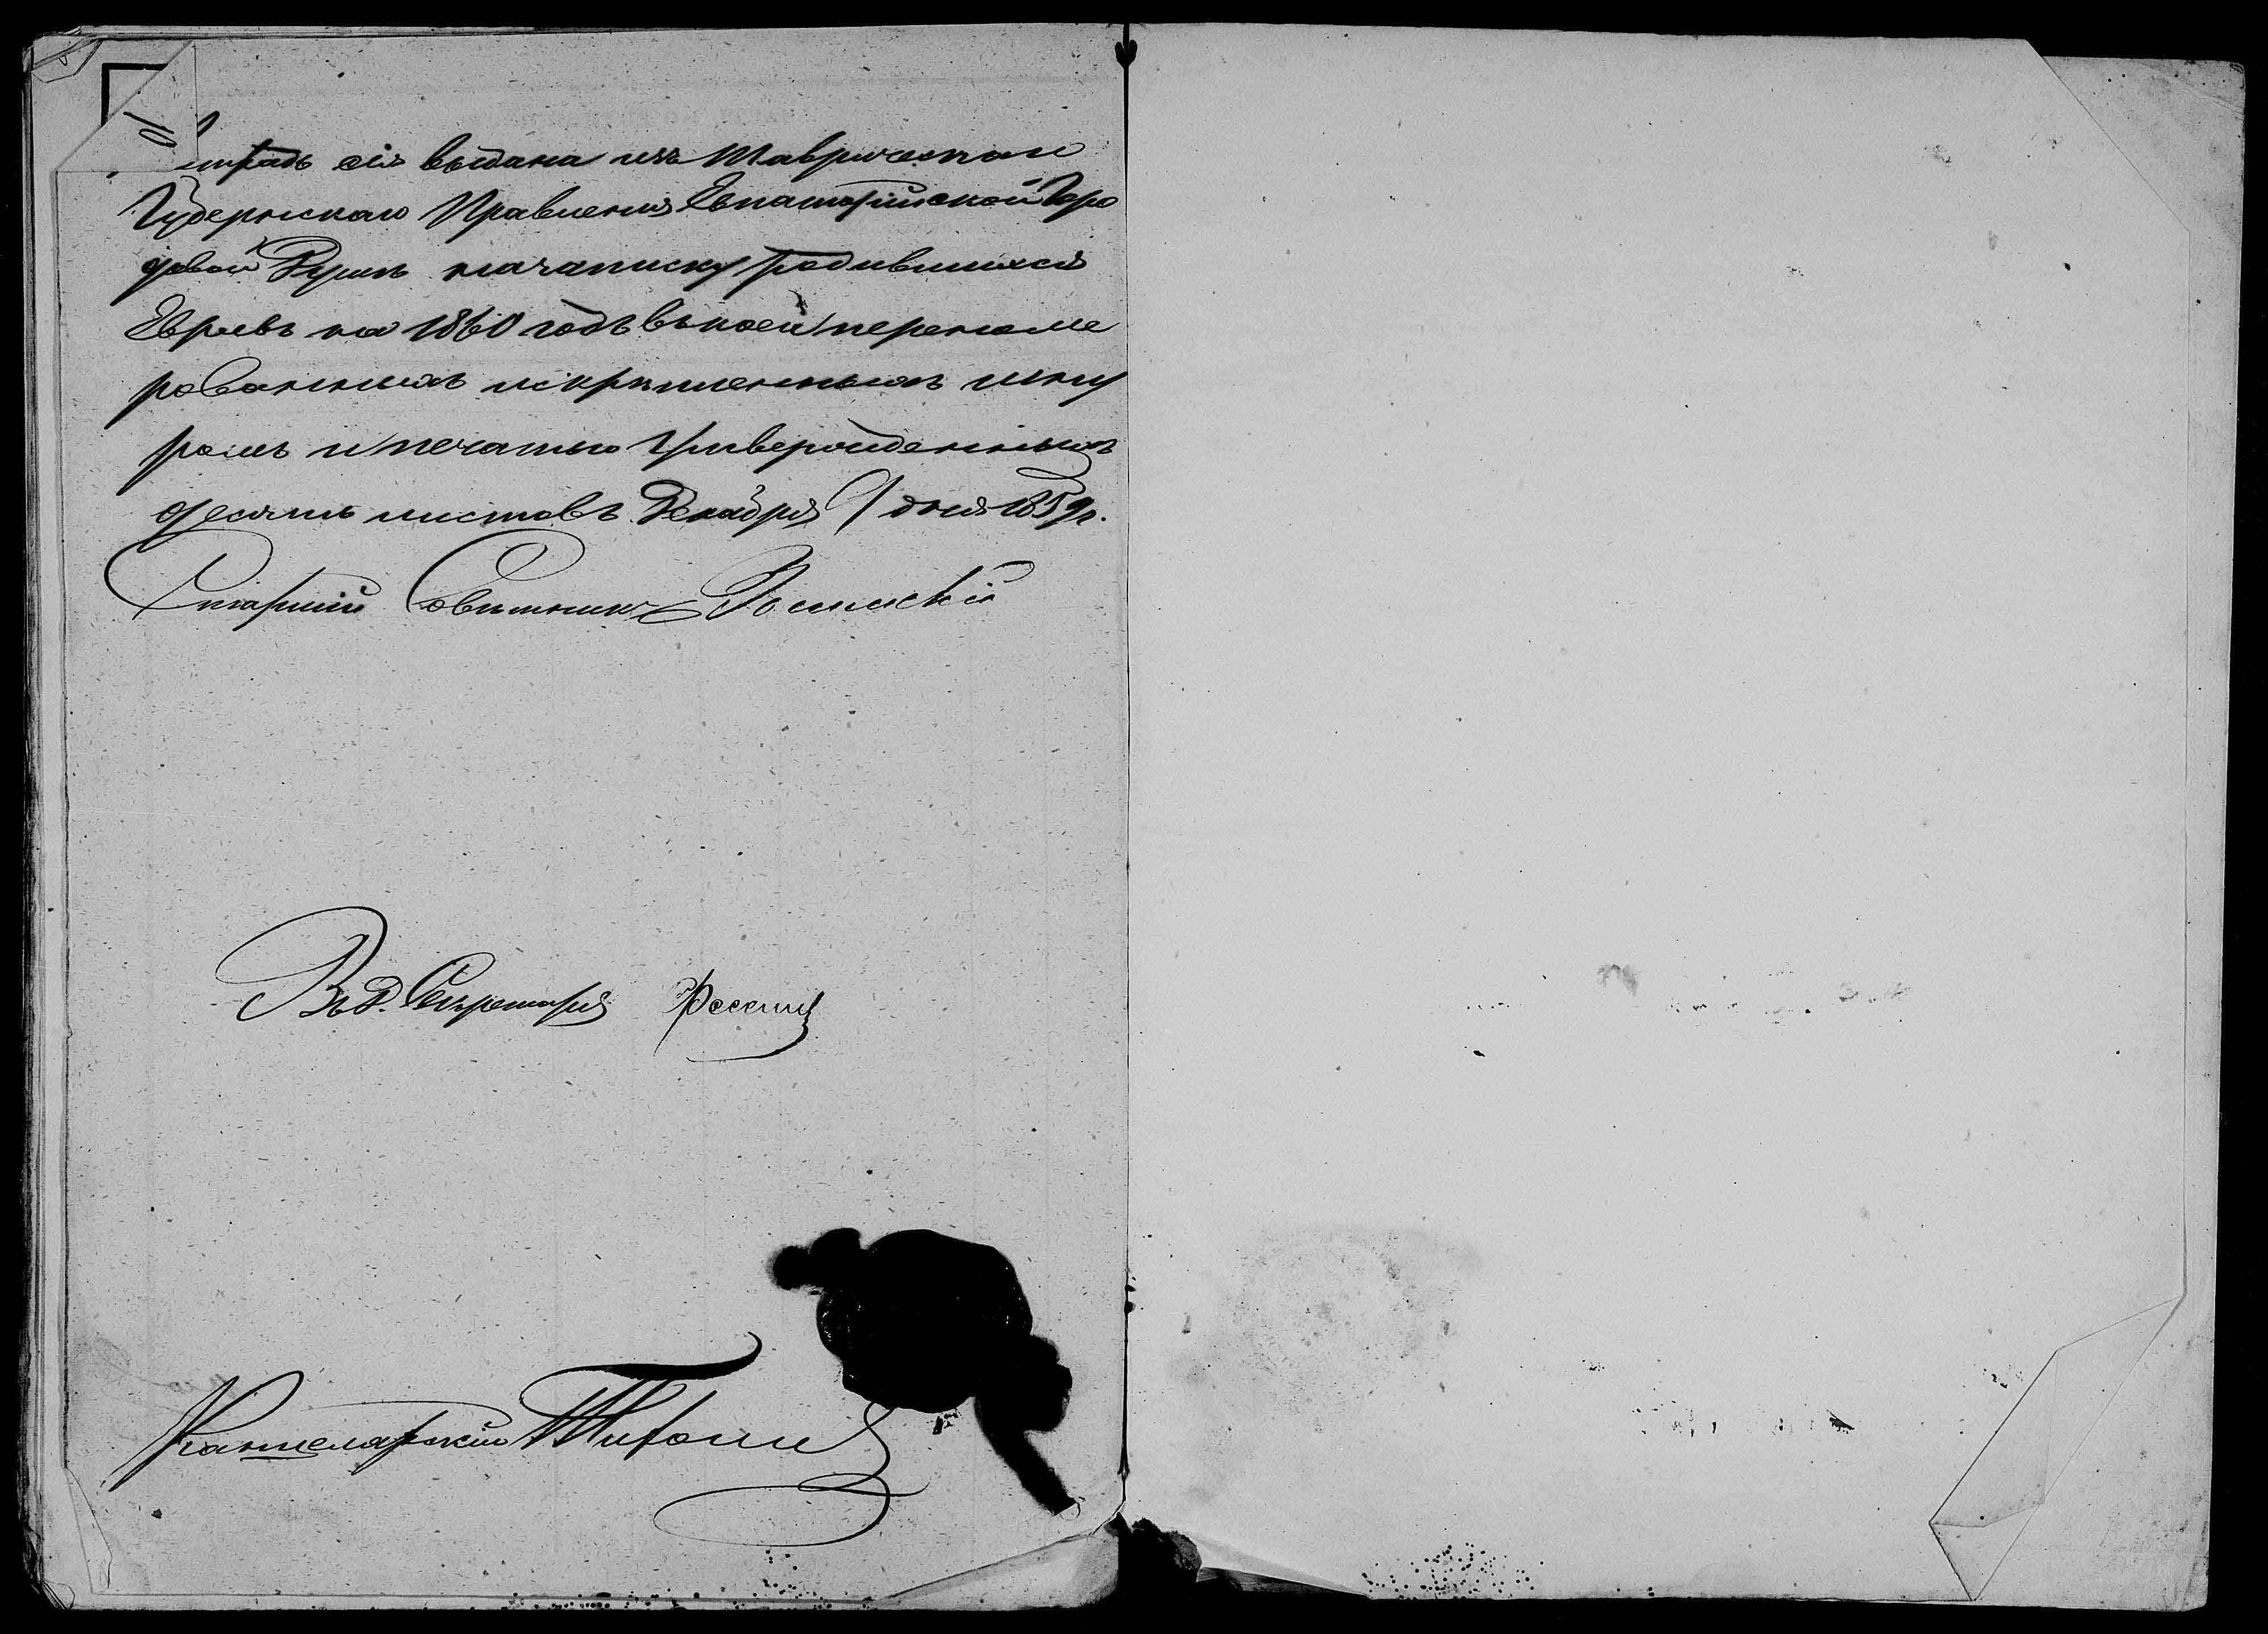 тетрадь сія выдана изъ Таврическаго
Губернскаго Правленія Евпаторійской Горо
довой Думѣ на записку родившихся
Евреевъ на 1860 годъ въ коей перенуме
рованныхъ и скрѣпленныхъ шну
ромъ и печатью утвержденныхъ
десять листовъ Декабря дня 1859 г.
Старшій Совѣтникъ
Въ д. Секретаря
Канцелярскій